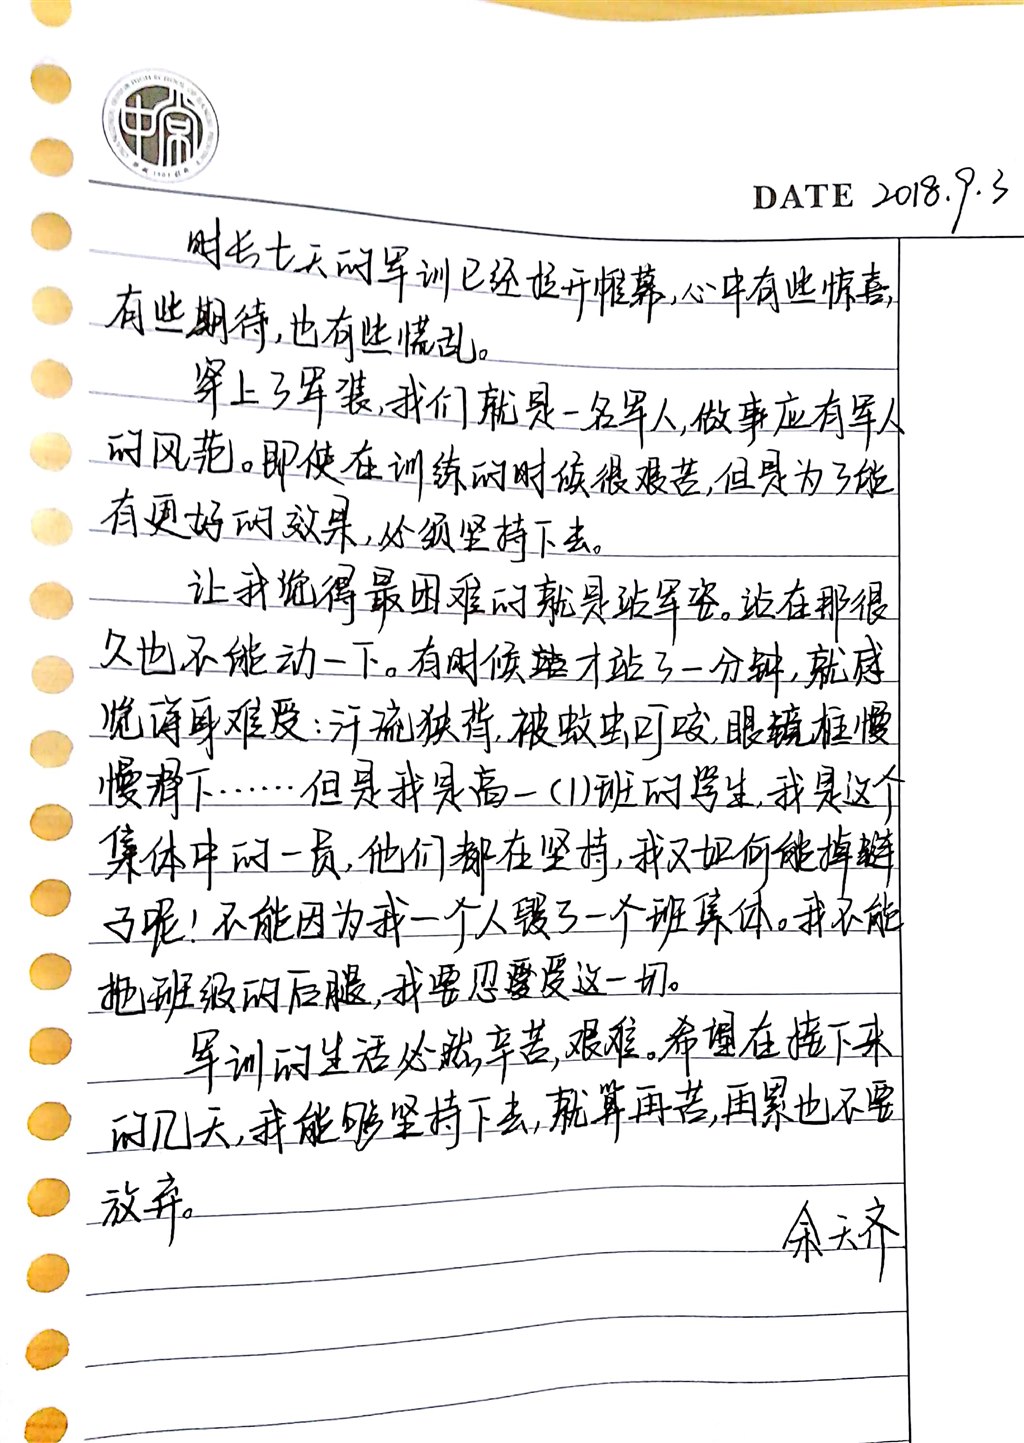 中常
DATE 2018.9.3
时长七天的军训已经拉开帷幕,心中有些惊喜,
有些期待,也有些慌乱。
穿上了军装,我们就是一名军人,做事应有军人
的风范。即使在训练的时候很艰苦,但是为了能
有更好的效果,必须坚持下去。
让我觉得最困难的就是站军姿。站在那很
久也不能动一下。有时候才站了一分钟,就感
觉浑身难受:汗流狭背,被蚊虫叮咬,眼镜框慢
慢滑下……但是我是高一(1)班的学生,我是这个
集体中的一员,他们都在坚持,我又如何能掉链
子呢!不能因为我一个人毁了一个班集体。我不能
拖班级的后腿,我要忍受这一切。
军训的生活必然辛苦,艰难。希望在接下来
的几天,我能够坚持下去,就算再苦,再累也不要
放弃。
余天齐